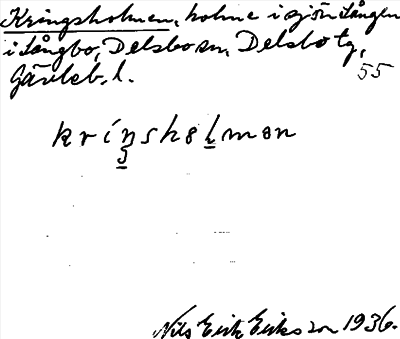 Kringsholmen, holme i sjön Lången
i Långbo, Delsbo sn, Delsbo tg,
Gävleb. l.
55
kríŋshəlmən
Nils Erik Eriksson 1936.